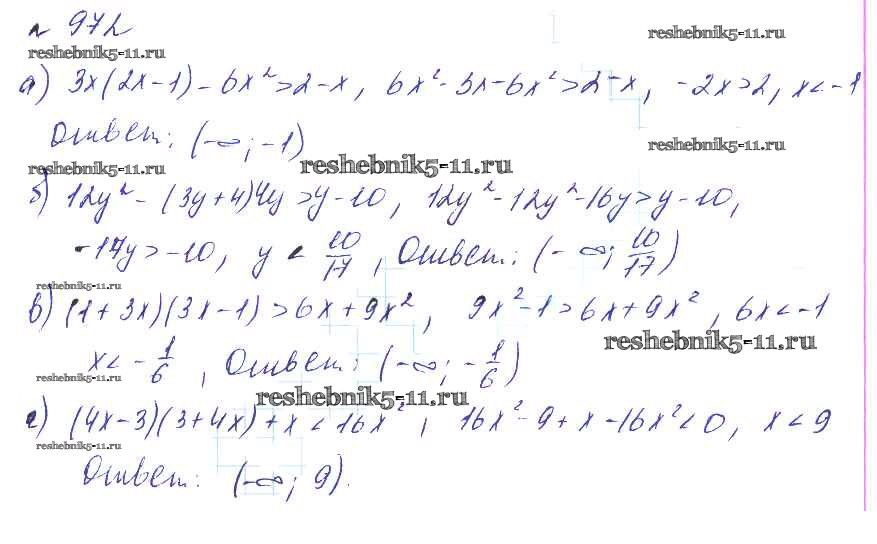 № 972
reshebnik5-11.ru
reshebnik5-11.ru
а) 3x(2x-1)-6x²>2-x, 6x²-3x-6x²>2-x, -2x>2, x<-1
Ответ: (-∞; -1)
reshebnik5-11.ru
reshebnik5-11.ru
reshebnik5-11.ru
б) 12y²-(3y+4)4y>y-10, 12y²-12y²-16y>y-10,
-17y>-10, y < 10/17, Ответ: (-∞; 10/17)
reshebnik5-11.ru
в) (1+3x)(3x-1)>6x+9x², 9x²-1>6x+9x², 6x<-1
reshebnik5-11.ru
x< -1/6, Ответ: (-∞; -1/6)
reshebnik5-11.ru
reshebnik5-11.ru
г) (4x-3)(3+4x)+x<16x², 16x²-9+x-16x²<0, x<9
reshebnik5-11.ru
Ответ: (-∞; 9).